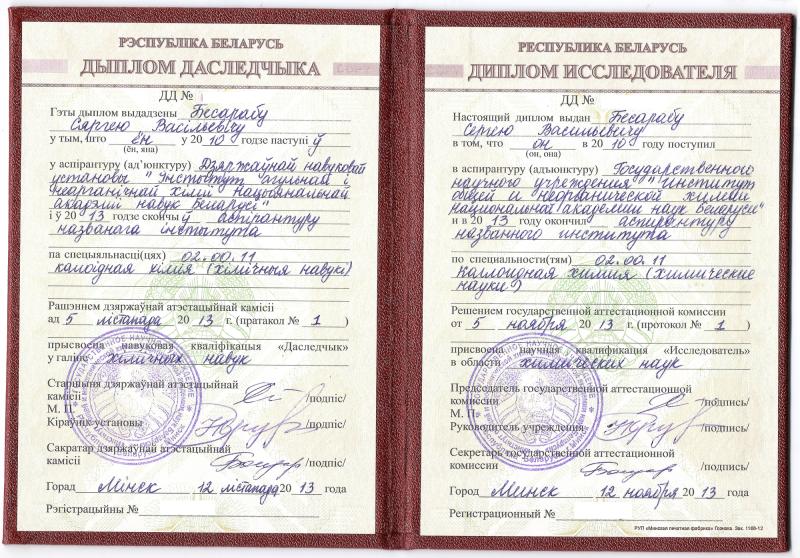 РЭСПУБЛІКА БЕЛАРУСЬ
ДЫПЛОМ ДАСЛЕДЧЫКА
ДД №
Гэты дыплом выдадзены Бесарабу
Сяргею Васільевічу
у тым, што ён у 2010 годзе паступі ў
(ён, яна)
у аспірантуру (ад'юнктуру) Дзяржаўнай навуковай
установы "Інстытут агульнай і
неарганічнай хіміі Нацыянальнай
акадэміі навук Беларусі"
і ў 2013 годзе скончы ў аспірантуру
названага інстытута
па спецыяльнасці(цях) 02.00.11
калоідная хімія (хімічныя навукі)
Рашэннем дзяржаўнай атэстацыйнай камісіі
ад 5 лістапада 2013 г. (пратакол № 1)
прысвоена навуковая кваліфікацыя «Даследчык»
у галіне хімічных навук
Старшыня дзяржаўнай атэстацыйнай
камісіі /подпіс/
М. П.
Кіраўнік установы /подпіс/
Сакратар дзяржаўнай атэстацыйнай
камісіі /подпіс/
Горад Мінск 12 лістапада 2013 года
Рэгістрацыйны №
РЕСПУБЛИКА БЕЛАРУСЬ
ДИПЛОМ ИССЛЕДОВАТЕЛЯ
ДД №
Настоящий диплом выдан Бесарабу
Сергею Васильевичу
в том, что он в 2010 году поступил
(он, она)
в аспирантуру (адъюнктуру) Государственного
научного учреждения "Институт
общей и неорганической химии
Национальной академии наук Беларуси"
и в 2013 году окончил аспирантуру
названного института
по специальности(тям) 02.00.11
Коллоидная химия (химические
науки)
Решением государственной аттестационной комиссии
от 5 ноября 2013 г. (протокол № 1)
присвоена научная квалификация «Исследователь»
в области химических наук
Председатель государственной аттестационной
комиссии /подпись/
М. П.
Руководитель учреждения /подпись/
Секретарь государственной аттестационной
комиссии /подпись/
Город Минск 12 ноября 2013 года
Регистрационный №
РУП «Минская печатная фабрика» Гознака. Зак. 1168-12